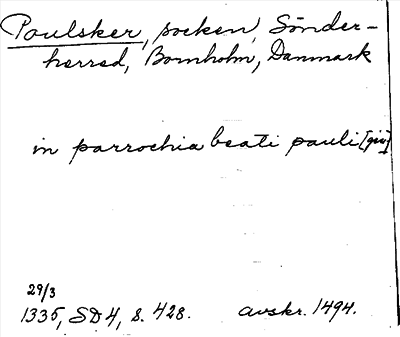 Poulsker, socken, Sönder-
herred, Bornholm, Danmark
in parrochia beati pauli [giv]
29/3
1335, SD 4, s. 428. avskr. 1494.